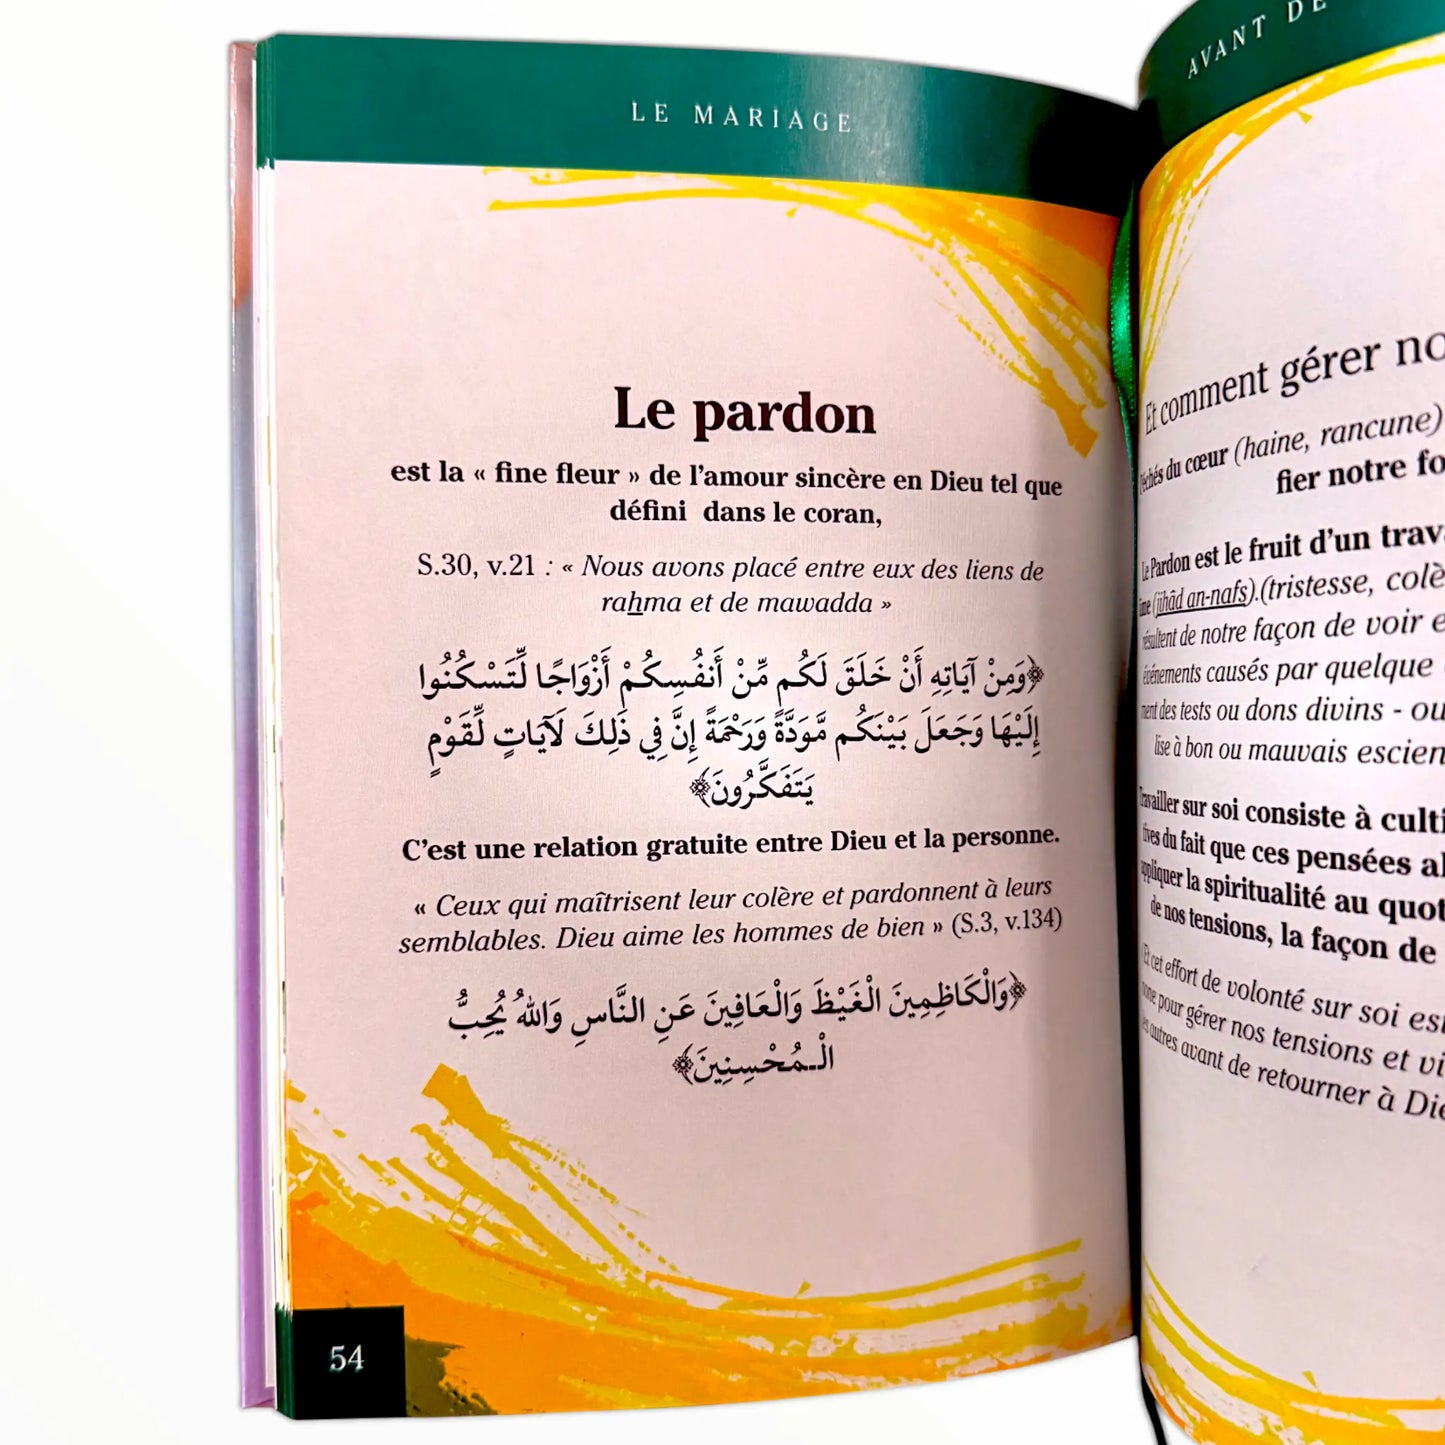 LE MARIAGE
Le pardon
est la « fine fleur » de l’amour sincère en Dieu tel que
défini dans le coran,
S.30, v.21 : « Nous avons placé entre eux des liens de
rahma et de mawadda »
﴿وَمِنْ آيَاتِهِ أَنْ خَلَقَ لَكُم مِّنْ أَنفُسِكُمْ أَزْوَاجًا لِّتَسْكُنُوا
إِلَيْهَا وَجَعَلَ بَيْنَكُم مَّوَدَّةً وَرَحْمَةً إِنَّ فِي ذَلِكَ لَآيَاتٍ لِّقَوْمٍ
يَتَفَكَّرُونَ﴾
C’est une relation gratuite entre Dieu et la personne.
« Ceux qui maîtrisent leur colère et pardonnent à leurs
semblables. Dieu aime les hommes de bien » (S.3, v.134)
﴿وَالْكَاظِمِينَ الْغَيْظَ وَالْعَافِينَ عَنِ النَّاسِ وَاللهُ يُحِبُّ
الْـمُحْسِنِينَ﴾
54
AVANT DE
Et comment gérer
Péchés du cœur (haine, rancune)
fier notre
Le Pardon est le fruit d’un
(jihâd an-nafs).(tristesse,
résultent de notre façon de voir
événements causés par quelque
des tests ou dons divins - ou
lise à bon ou mauvais
Travailler sur soi consiste à
tives du fait que ces pensées
appliquer la spiritualité au
de nos tensions, la façon de
Et cet effort de volonté sur soi
pour gérer nos tensions et
les autres avant de retourner à